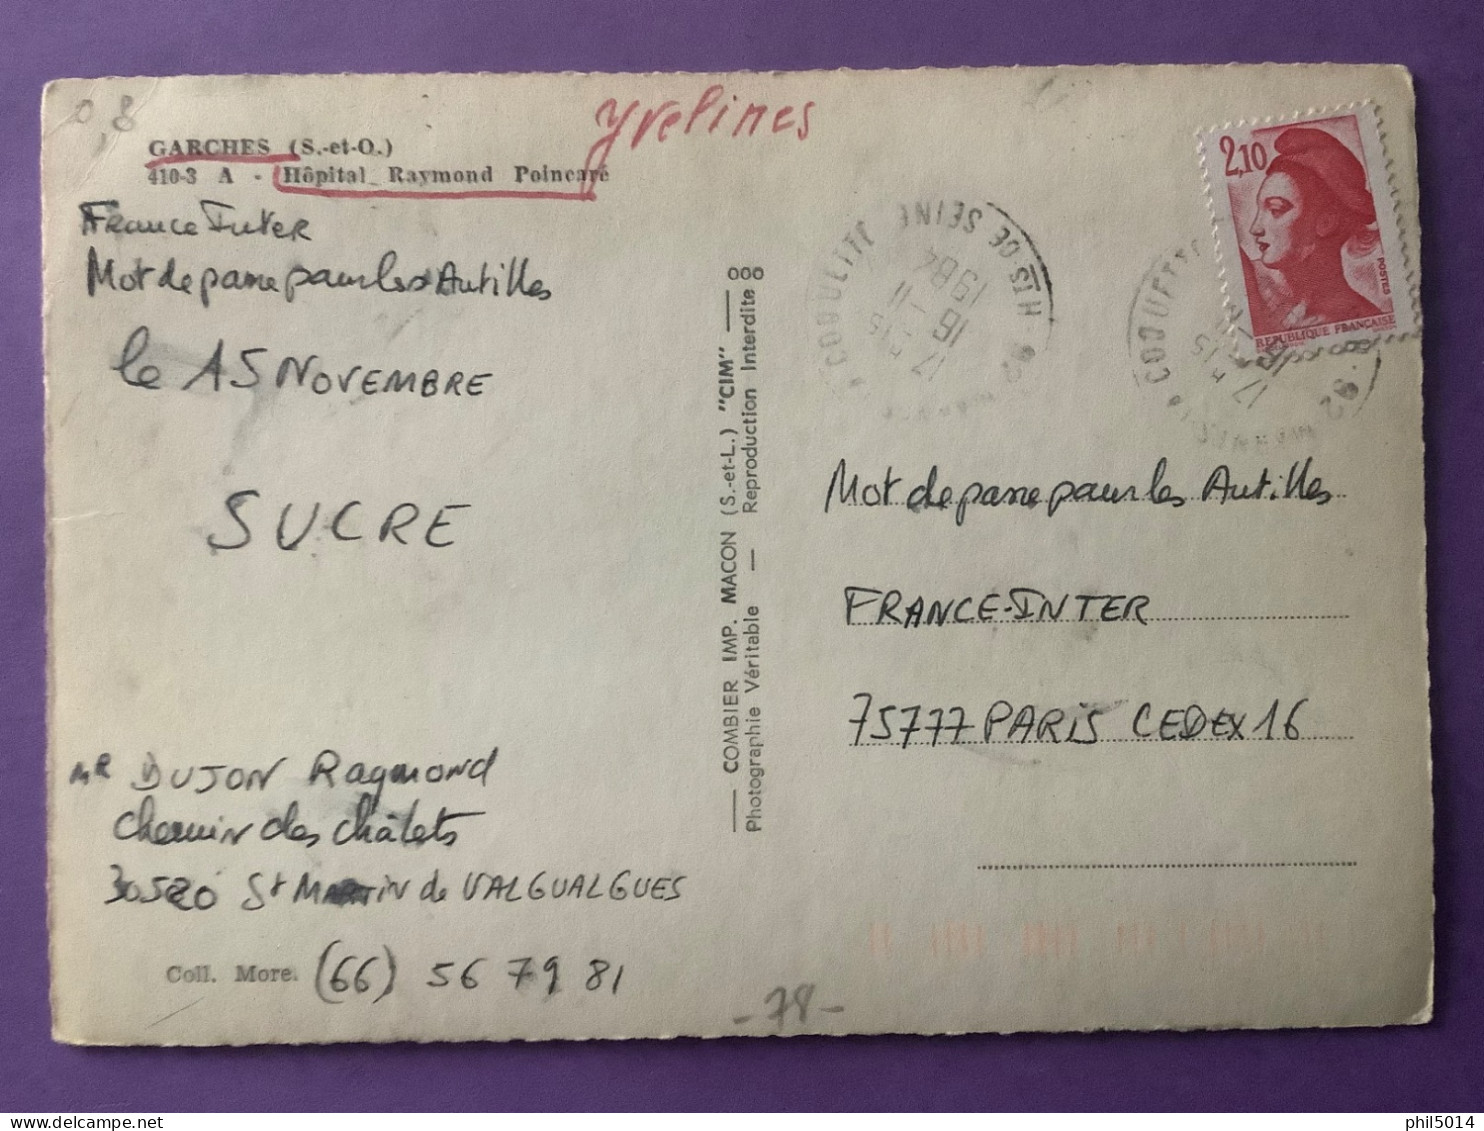 0,8
yvelines
GARCHES (S.-et-O.)
410-3 A - Hôpital Raymond Poincaré
France Inter
Mot de passe pour les Antilles
le 15 NOVEMBRE
SUCRE
MR DUJON Raymond
Chemin des châlets
30520 St MARTIN de VALGUALGUES
Coll. More. (66) 56 79 81
COMBIER IMP. MACON (S.-et-L.) "CIM"
Photographie Véritable — Reproduction Interdite
000
HTS DE SEINE
92
17 H 15
16 - 11
1984
2,10
POSTES
REPUBLIQUE FRANÇAISE
92
17 H 15
Mot de passe pour les Antilles
FRANCE-INTER
75777 PARIS CEDEX 16
- 78 -
phil5014